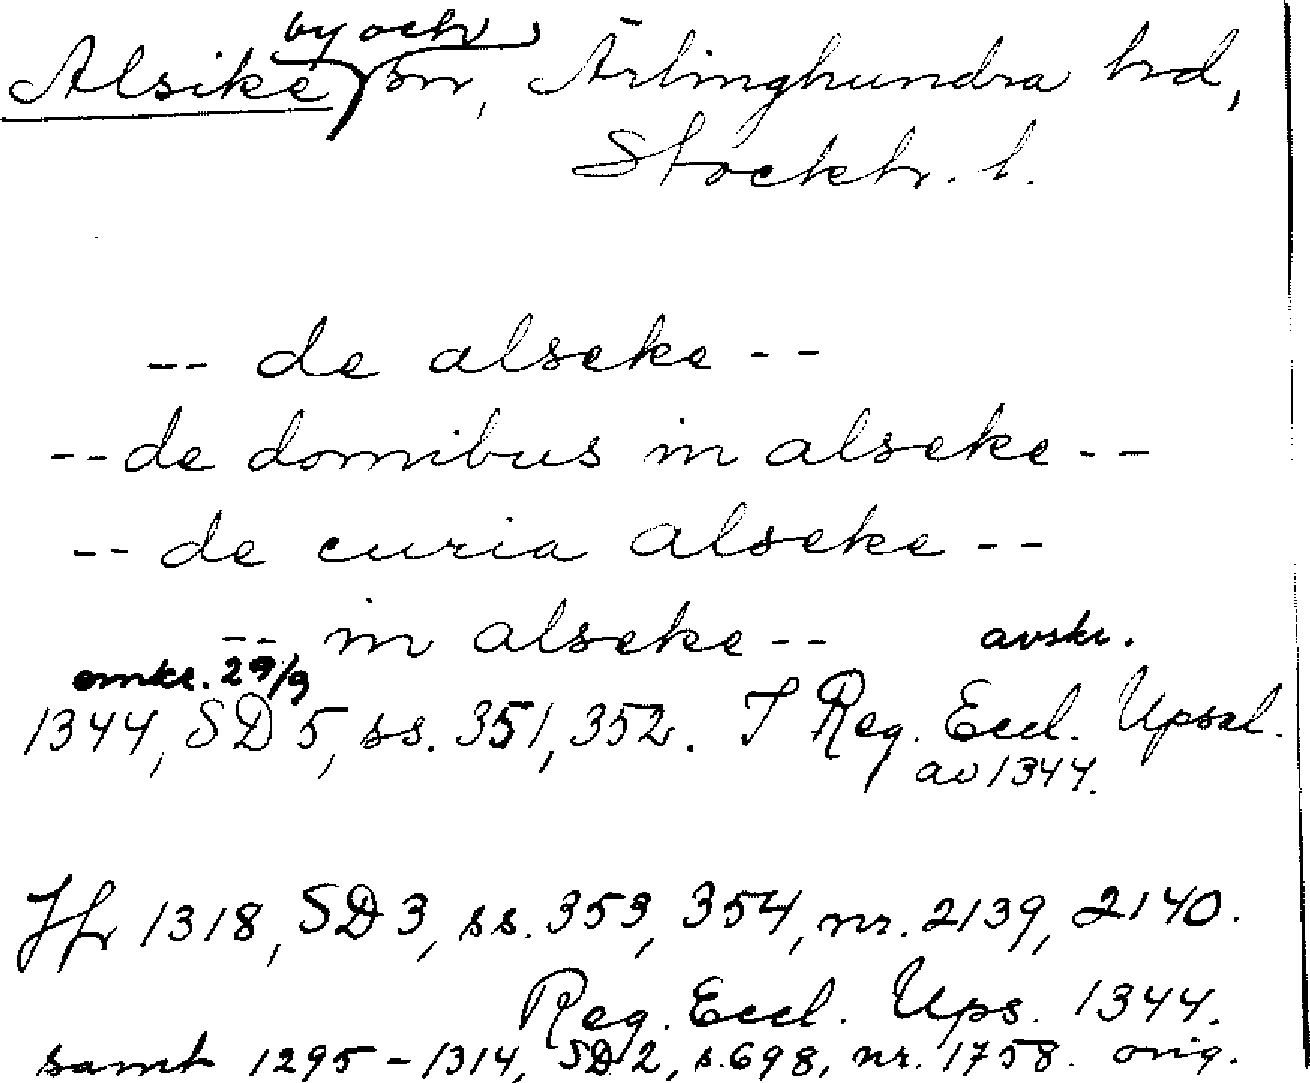 by och
Alsike sn, Ärlinghundra hd,
Stockh. l.
-- de alseke --
-- de domibus in alseke --
-- de curia alseke --
-- in alseke -- avskr.
omkr. 29/9
1344, SD 5, ss. 351, 352. I Reg. Eccl. Upsal.
av 1344.
Jfr 1318, SD 3, ss. 353, 354, nr. 2139, 2140.
Reg. Eccl. Ups. 1344.
samt 1295 - 1314, SD 2, s. 698, nr. 1758. orig.